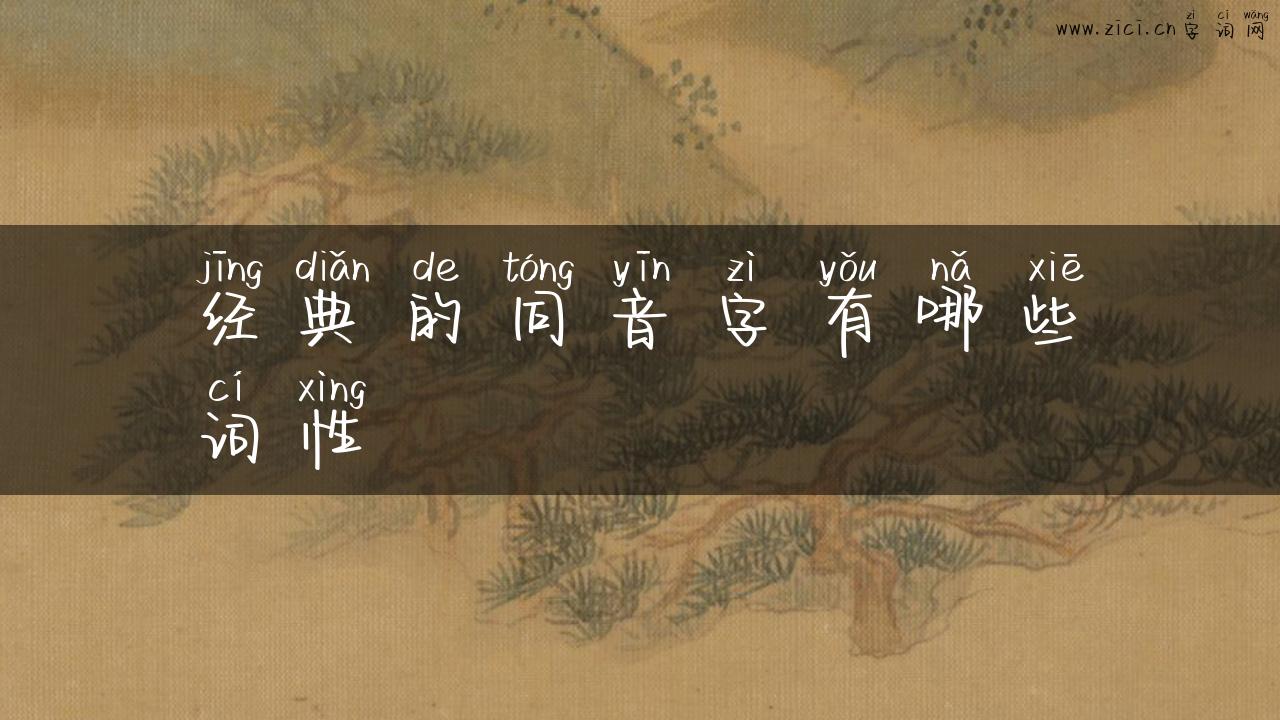 zì cí wǎng
www.zici.cn 字 词 网
jīng diǎn de tóng yīn zì yǒu nǎ xiē
经 典 的 同 音 字 有 哪 些
cí xìng
词 性